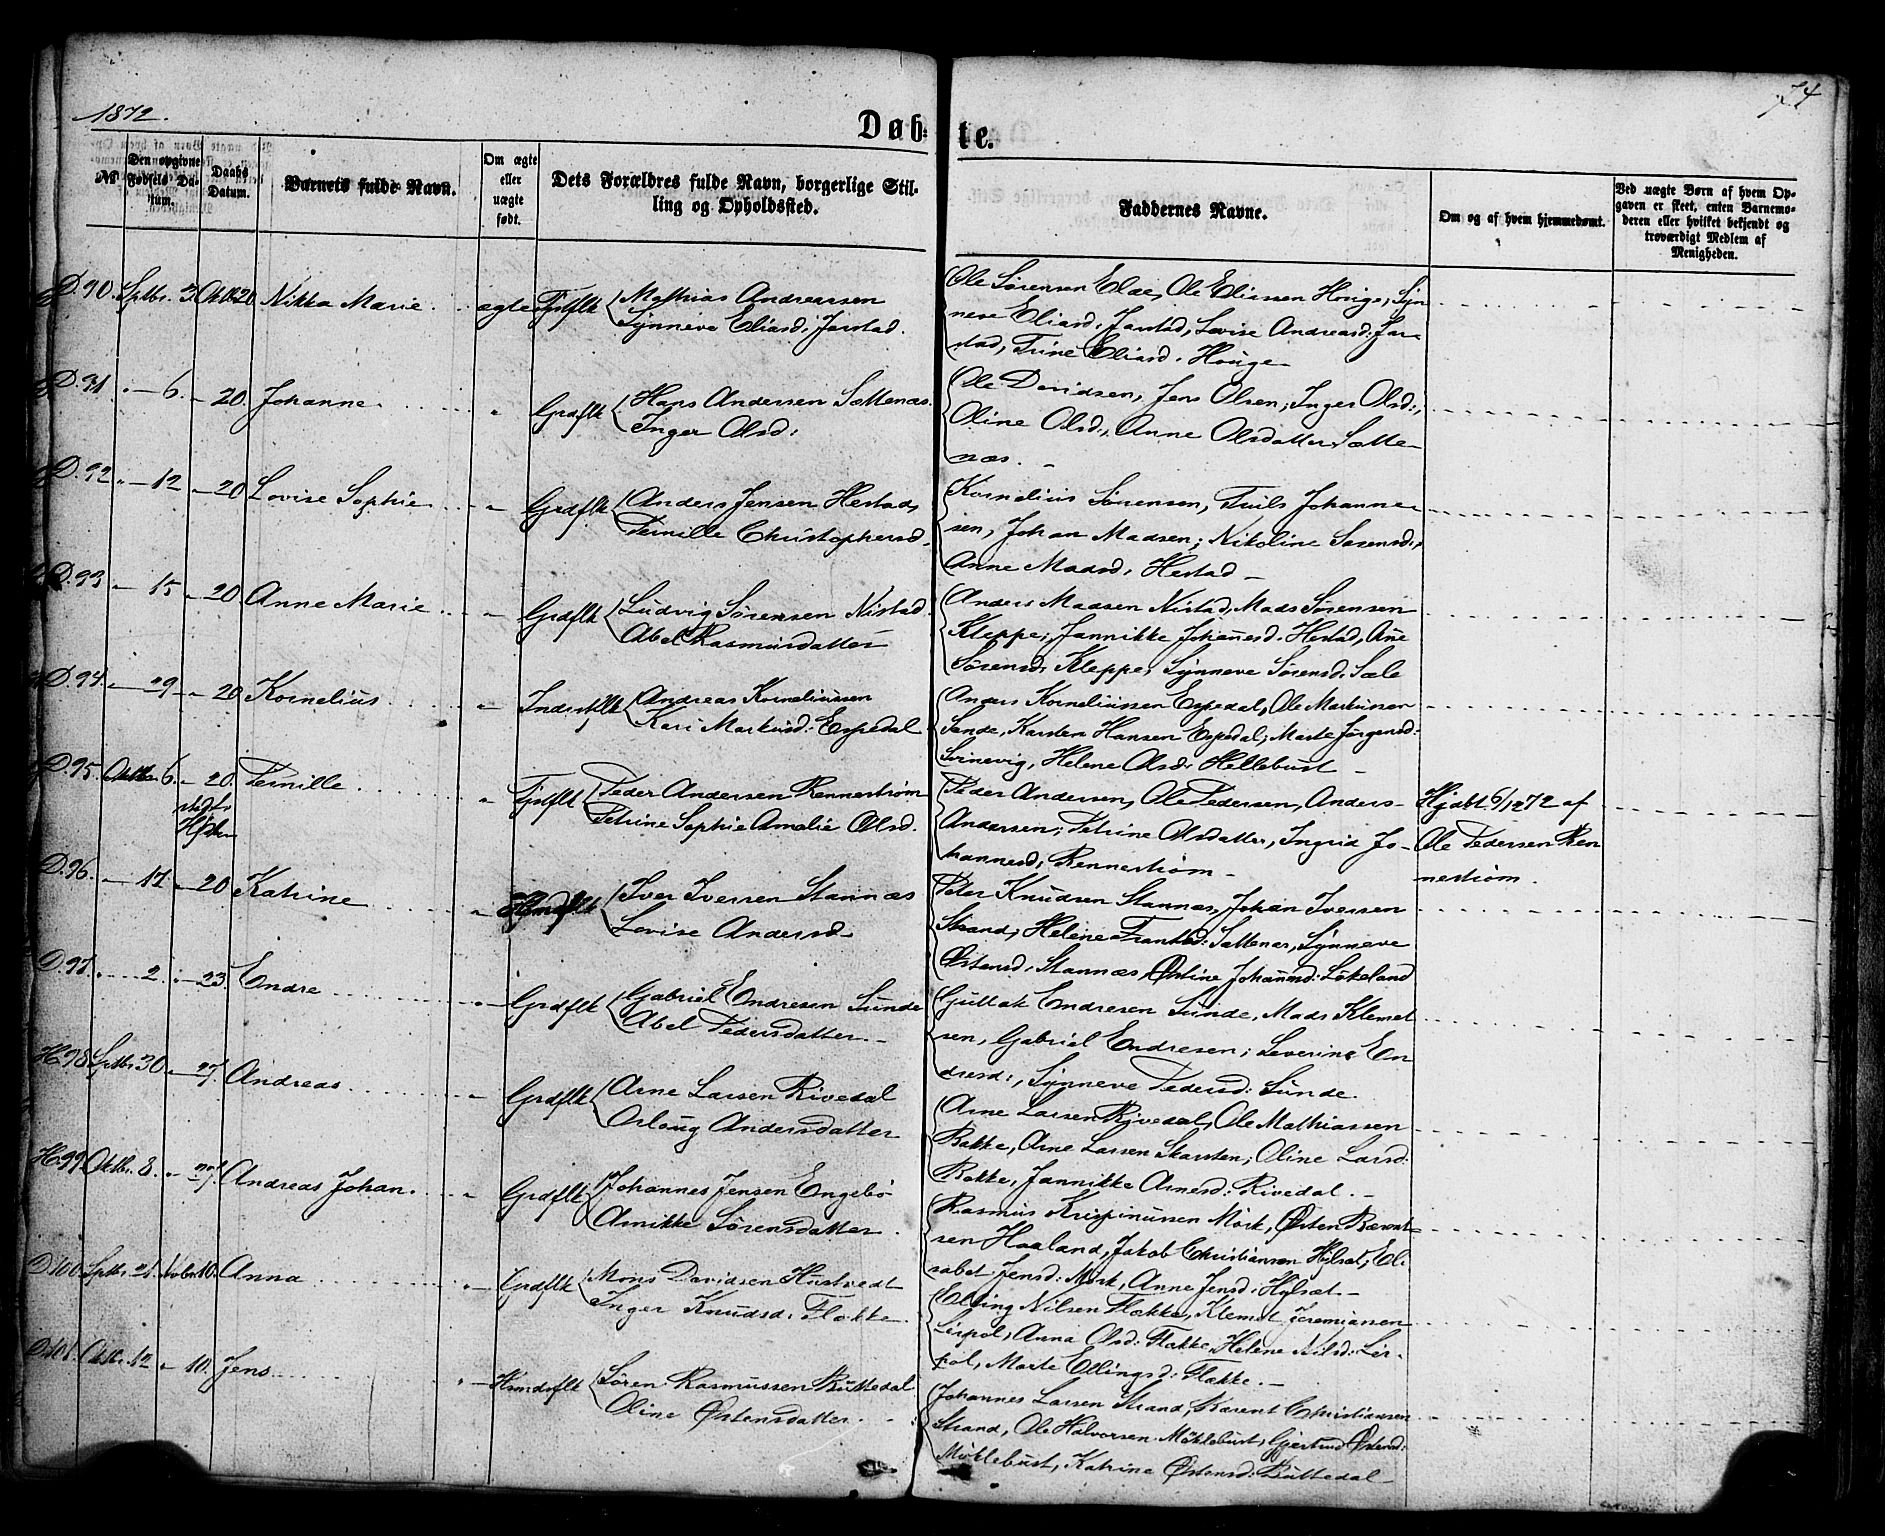 1872.
74
Døb-
te.
№
Den opgivne Fødsels Datum.
Daabs Datum.
Barnets fulde Navn.
Om ægte eller uægte født.
Dets Forældres fulde Navn, borgerlige Stilling og Opholdssted.
Faddernes Navne.
Om og af hvem hjemmedøbt.
Ved uægte Børn af hvem Opgaven er skeet, enten Barnemoderen eller hvilket bekjendt og troværdigt Medlem af Menigheden.
D. 90. Sptbr. 3. Oktb 20. Nikka Marie ægte
Mathias Andreassen
Synneve Eliasd: Jarstad.
Ole Sørensen Ole Eliassen Houge, Syn-
neve Eliasd: Jarstad, Lovise Andreasd: Jar-
stad, Trine Eliasd: Houge
D. 91 " 6. " 20. Johanne " Grdflk
Hans Andersen Sættenæs.
Inger Olsd:
Ole Davidsen, Jens Olsen; Inger Olsd:,
Oline Olsd:, Anne Olsdatter Sætte-
næs.
D. 92 " 12 " 20 Lovise Sophie " Grdflk
Anders Jensen Hestad,
Pernille Christophersd.
Kornelius Sørensen, Johanne-
sen, Johan Madsen; Nikoline Sørensd:,
Anne Madsd: Hestad
D. 93 " 15 " 20. Anne Marie " Grdflk
Ludvig Sørensen Nistad.
Abel Rasmusdatter
Anders Madsen Nistad, Mads Sørensen
Kleppe; Jannikke Johannesd. Hestad, Ane
Sørensd: Kleppe, Synneve Sørensd: Sæle
D. 94. " 29 " 20 Kornelius " Inderstflk
Andreas Korneliussen
Kari Markusd: Espedal
Anders Korneliussen Espedal, Ole Markussen
Sande, Karsten Hansen Espedal; Marte Jørgensd:
Svinevig, Helene Olsd: Hellebust
D. 95. Oktbr. 6. " 20. Pernille "
Peder Andersen Rennestrøm
Petrine Sophie Amalie Olsd.
Peder Andersen, Ole Pedersen, Anders
Andersen; Petrine Olsdatter, Ingrid Jo-
hannesd: Rennestrøm
Hjdbt 6/10 72 af
Ole Pedersen Ren
nestrøm.
D. 96. " 17 " 20 Katrine "
Iver Iversen Stannæs
Lovise Andersd.
Peter Knudsen Stannæs, Johan Iversen
Strand; Helene Sættenæs, Synneve
Østensd: Stannæs, Østine Johannesd: Løkeland
D. 97. " 2. " 23. Endre " Grdflk
Gabriel Endresen Sunde
Abel Pedersdatter.
Guttak Endresen Sunde, Mads Klemet
sen, Gabriel Endresen; Severine En
dresd:, Synneve Pedersd: Sunde.
H. 98 Sptbr 30 " 27. Andreas " Grdflk
Arne Larsen Rivedal
Andersdatter
Arne Larsen Rivedal, Ole Mathiassen
Bakke, Arne Larsen Skarsten; Oline Larsd:
Bakke, Jannikke Arnesd: Rivedal.
H. 99. Oktbr. 8. " 27. Andreas Johan. " Grdflk
Johannes Jensen Engebø
Annikke Sørensdatter.
Rasmus Krispinussen Mørk, Østen
sen Haaland, Jakob Christiansen Hylsæt; Eli
sabet Jensd: Mørk, Anne Jensd: Hylsæt
D. 100. Sptbr. 21. Novbr 10. Anna " Grdflk
Mons Davidsen Hustvedt
Inger Knudsd: Flække
Elling Nilsen Flække, Klemet Jeremiassen
Leirpol; Anna Olsd: Flække, Helene Nilsd: Leir-
pol, Marte Ellingsd: Flække.
D. 101. Oktbr. 12 " 10. Jens "
Søren Rasmussen Buttedal
Oline Østensdatter.
Johannes Larsen Strand, Karent Christiansen
Strand, Ole Halvorsen Møklebust; Gjertrud Østensd:
Møklebust, Katrine Østensd: Buttedal